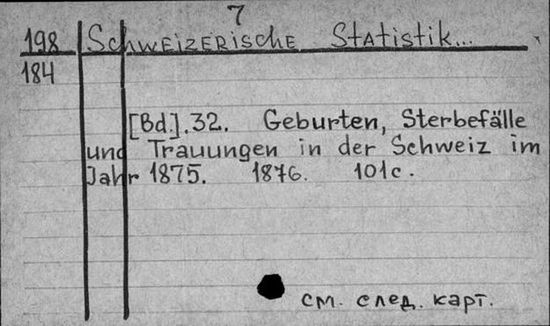 7
198 Schweizerische Statistik...
184
[Bd].32. Geburten, Sterbefälle
und Trauungen in der Schweiz im
Jahr 1875. 1876. 101с.
см. след. карт.